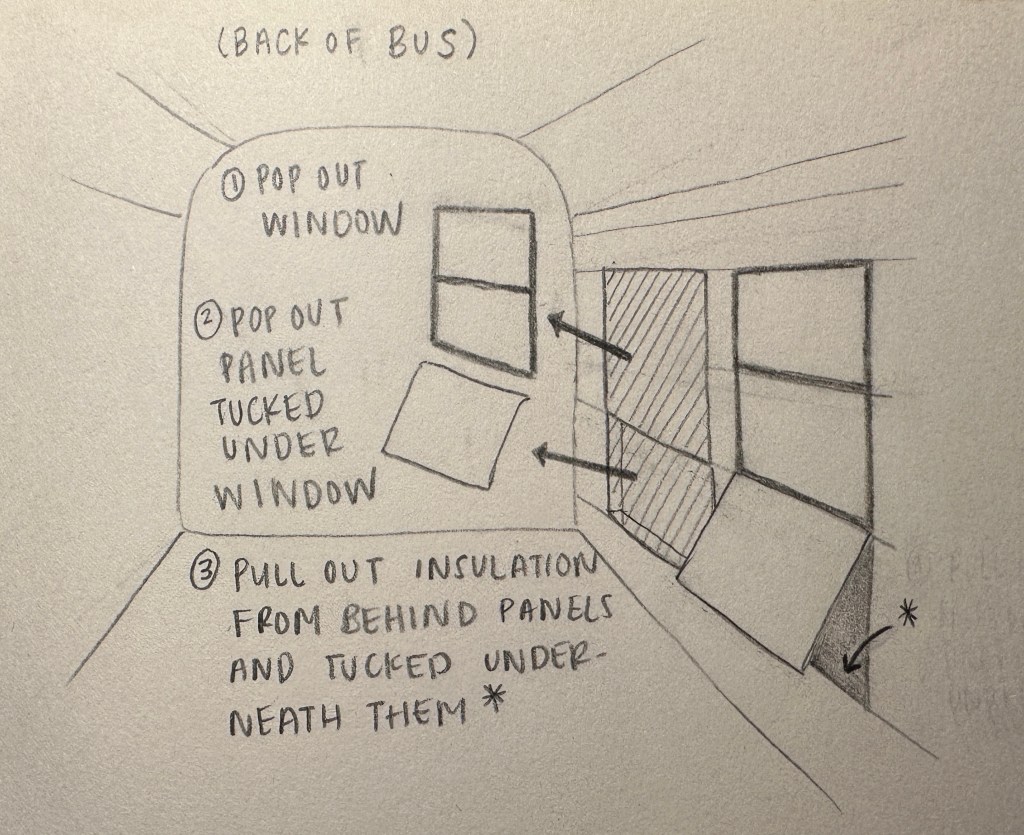 (BACK OF BUS)
① POP OUT
WINDOW
② POP OUT
PANEL
TUCKED
UNDER
WINDOW
③ PULL OUT INSULATION
FROM BEHIND PANELS
AND TUCKED UNDER-
NEATH THEM *
*